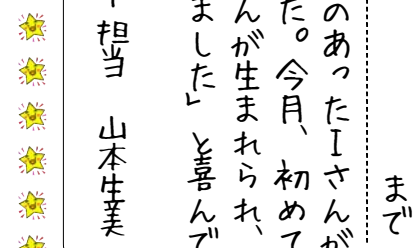 まで
のあったIさんが
た。今月、初めて
んが生まれられ、
ました」と喜んで
担当　山本生美